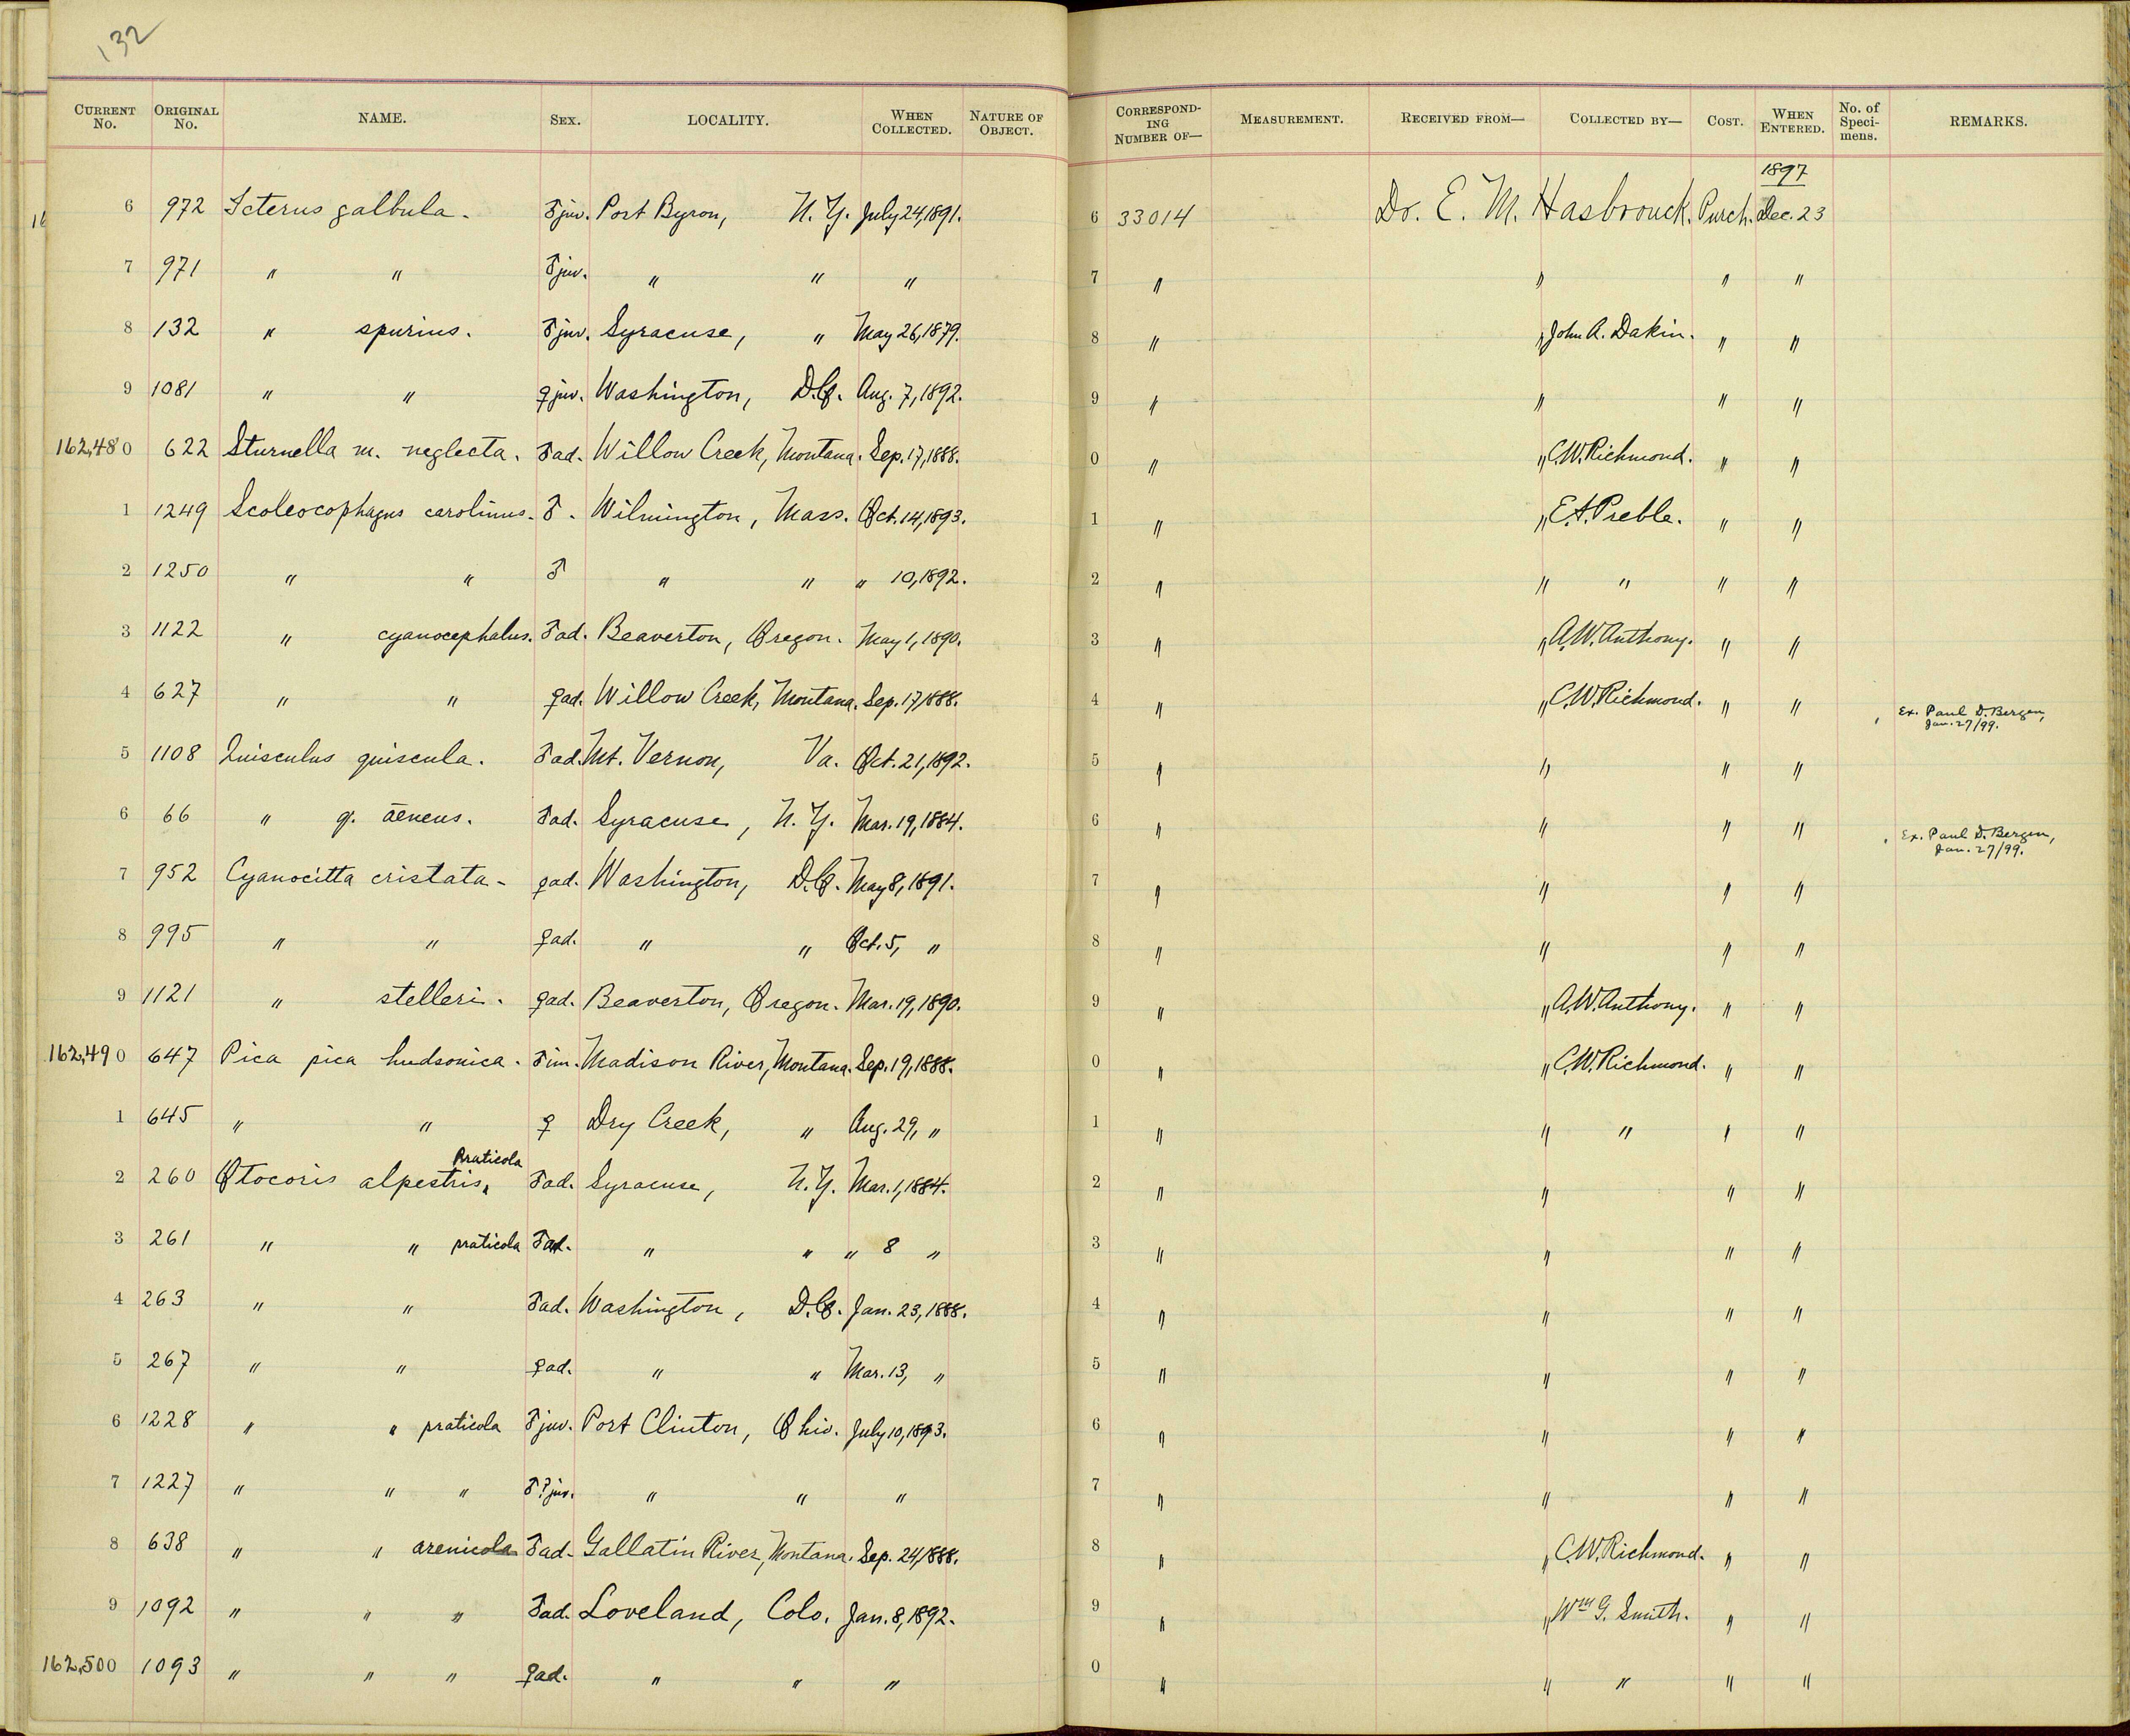 132
CURRENT No. ORIGINAL No. NAME. SEX. LOCALITY. WHEN COLLECTED. NATURE OF OBJECT. CORRESPONDING NUMBER OF— MEASUREMENT. RECEIVED FROM— COLLECTED BY— COST. WHEN ENTERED. No. of Specimens. REMARKS.
1897
6 972 Icterus galbula. ♂ juv. Port Byron, N.Y. July 24, 1891. 6 33014 Dr. E. M. Hasbrouck. Purch. Dec. 23
7 971 " " ♂ juv. " " " 7 " " " "
8 132 " spurius. ♂ juv. Syracuse, " May 26, 1879. 8 " " John A. Dakin. " "
9 1081 " " ♀ juv. Washington, D.C. Aug. 7, 1892. 9 " " " "
162,480 622 Sturnella m. neglecta. ♂ ad. Willow Creek, Montana. Sep. 17, 1888. 0 " " C.W. Richmond. " "
1 1249 Scoleocophagus carolinus. ♂. Wilmington, Mass. Oct. 14, 1893. 1 " " E.A. Preble. " "
2 1250 " " ♂ " " " 10, 1892. 2 " " " " "
3 1122 " cyanocephalus. ♂ ad. Beaverton, Oregon. May 1, 1890. 3 " " A.W. Anthony. " "
4 627 " " ♀ ad. Willow Creek, Montana. Sep. 17, 1888. 4 " " C.W. Richmond. " " Ex. Paul D. Bergen, Jan. 27/99.
5 1108 Quisculus quiscula. ♂ ad. Mt. Vernon, Va. Oct. 21, 1892. 5 " " " "
6 66 " q. aëneus. ♂ ad. Syracuse, N.Y. Mar. 19, 1884. 6 " " " " Ex. Paul D. Bergen, Jan. 27/99.
7 952 Cyanocitta cristata. ♀ ad. Washington, D.C. May 8, 1891. 7 " " " "
8 995 " " ♀ ad. " " Oct. 5, " 8 " " " "
9 1121 " stelleri. ♀ ad. Beaverton, Oregon. Mar. 19, 1890. 9 " " A.W. Anthony. " "
162,490 647 Pica pica hudsonica. ♂ im. Madison River, Montana. Sep. 19, 1888. 0 " " C.W. Richmond. " "
1 645 " " ♀ Dry Creek, " Aug. 29, " 1 " " " " "
2 260 Otocoris alpestris, Praticola ♂ ad. Syracuse, N.Y. Mar. 1, 1884. 2 " " " "
3 261 " " praticola ♂ ad. " " " 8 " 3 " " " "
4 263 " " ♂ ad. Washington, D.C. Jan. 23, 1888. 4 " " " "
5 267 " " ♀ ad. " " Mar. 13, " 5 " " " "
6 1228 " " praticola ♂ juv. Port Clinton, Ohio. July 10, 1893. 6 " " " "
7 1227 " " " ♂? juv. " " " 7 " " " "
8 638 " " arenicola ♂ ad. Gallatin River, Montana. Sep. 24, 1888. 8 " " C.W. Richmond. " "
9 1092 " " " ♂ ad. Loveland, Colo. Jan. 8, 1892. 9 " " Wm G. Smith. " "
162,500 1093 " " " ♀ ad. " " " 0 " " " " "